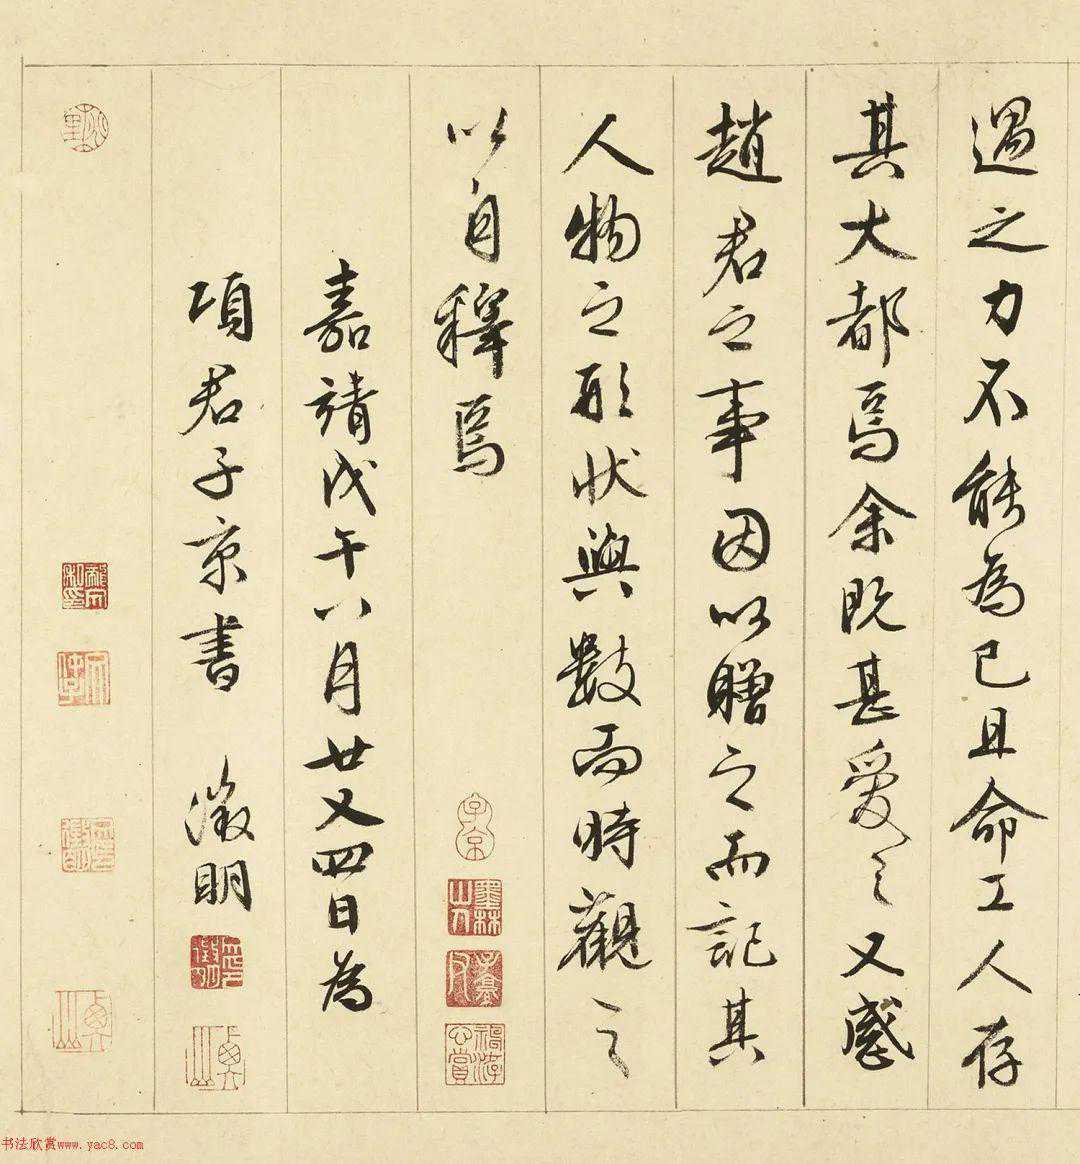 遇之力不能為已且命工人存
其大都焉余既甚愛之又感
趙君之事因以贈之而記其
人物之形狀與數而時觀之
以自釋焉
子京
墨林山人
嘉靖戊午八月廿又四日為
項君子京書 徵明
书法欣赏www.yac8.com